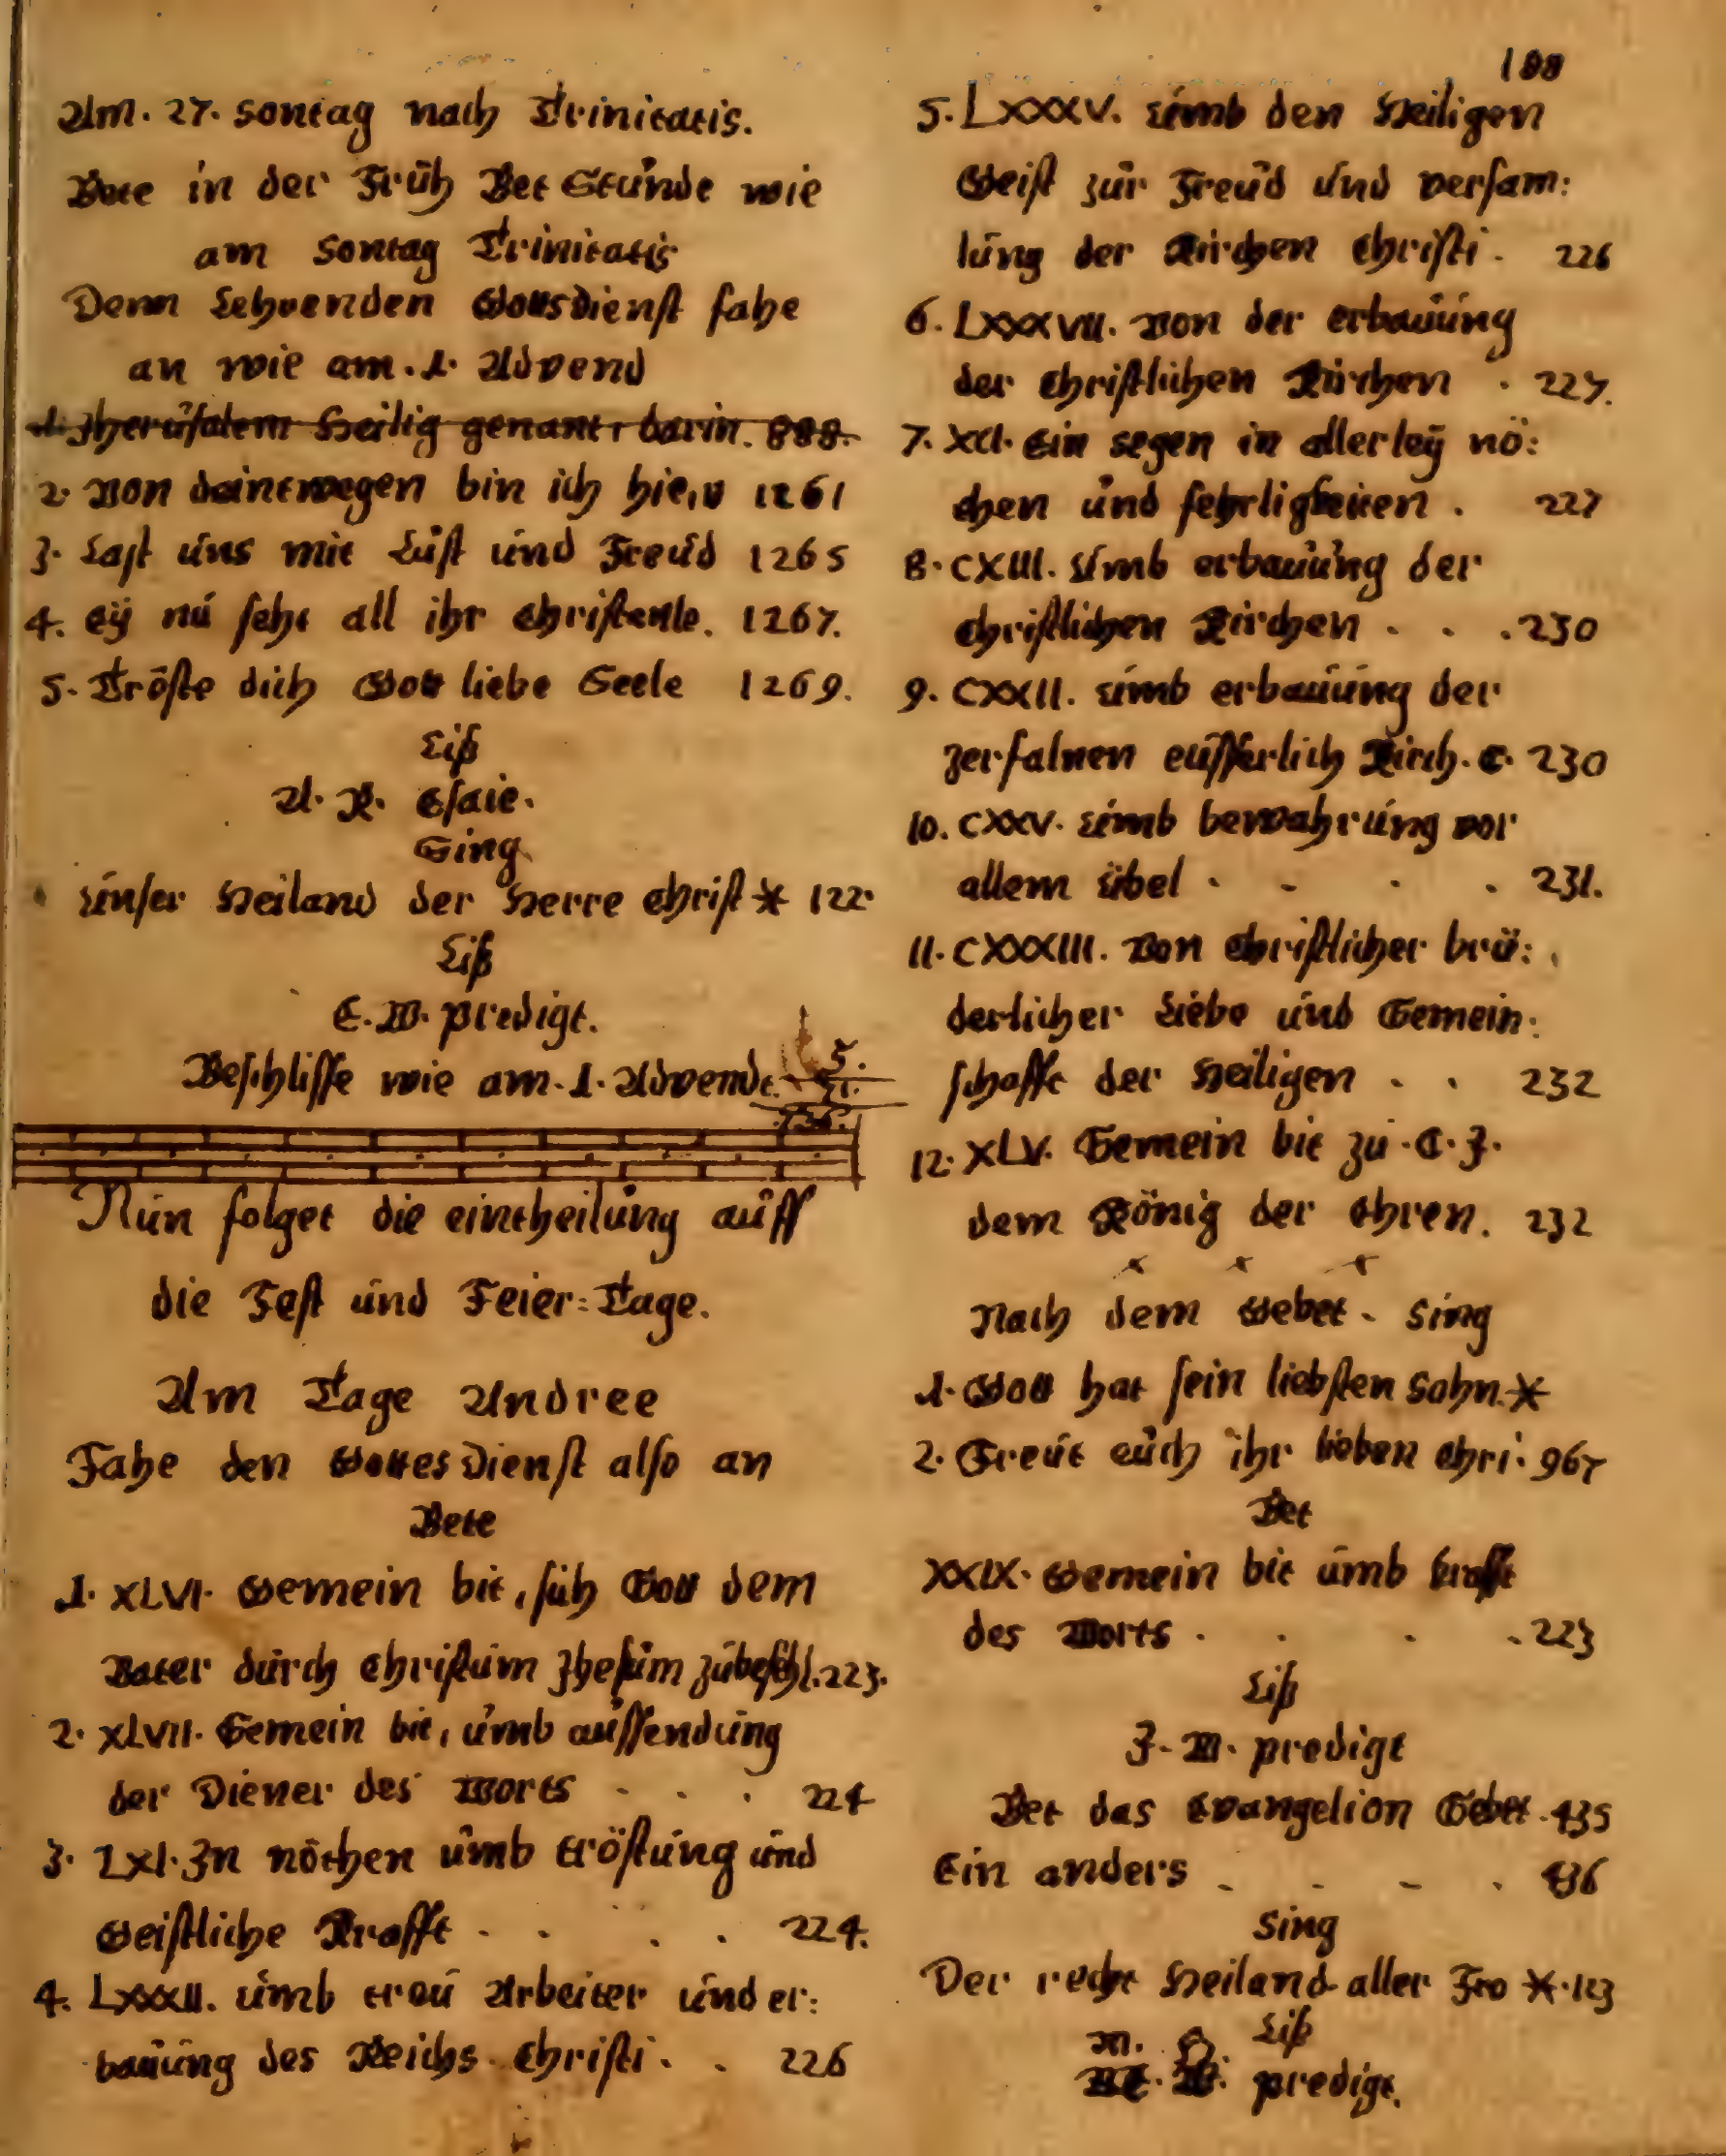 188
Am. 27. sontag nach Trinitatis.
Bete in der Früh Bet Stunde wie
am Sontag Trinitatis
Denn Lehrenden Gottsdienst fahe
an wie am. 1. Advend
1. Jherusalem Heilig genant, darin. 888.
2. Von deinetwegen bin ich hie, v 1261
3. Last uns mit Lust und Freud 1265
4. Eÿ nu seht all ihr Christenle. 1267.
5. Tröste dich Gott liebe Seele 1269.
Liß
A. K. Esaie.
Sing
Unser Heiland der Herre Christ * 122
Liß
E. W. predigt.
Beschlisse wie am. 1. Advend.
5.
Nun folget die eintheilung auff
die Fest und Feier=Tage.
Am Tage Andree
Fahe den Gottes Dienst also an
Bete
1. XLVI. Gemein bit, sich Gott dem
Vater durch Christum Jhesum zubefehl. 223.
2. XLVII. Gemein bit, umb aussendung
der Diener des Worts . . . 224
3. LXI. In nöthen umb tröstung und
Geistliche Krafft . . . . 224.
4. LXXXII. umb treu Arbeiter und er:
bauung des Reichs Christi . . 226
5. LXXXV. Umb den Heiligen
Geist zur Freud und versam:
lung der Kirchen Christi . 226
6. LXXXVII. Von der erbauung
der Christlichen Kirchen . 227.
7. XCI. Ein segen in allerleÿ nö:
then und fehrligkeiten . 227
8. CXIII. Umb erbauung der
Christlichen Kirchen . . . 230
9. CXXII. Umb erbauung der
zerfalnen eusserlich Kirch. C. 230
10. CXXV. Umb bewahrung vor
allem Übel . . . . 231.
11. CXXXIII. Von Christlicher brü:
derlicher Liebe und Gemein:
schafft der Heiligen . . 232
12. XLV. Gemein bit zu . C. J.
dem König der Ehren. 232
x x x
Nach dem Gebet. Sing
1. Gott hat sein liebsten Sohn. *
2. Freut euch ihr lieben Chri. 967
Bet
XXIX. Gemein bit umb krafft
des Worts . . . . 223
Liß
J. W. predigt
Bet das Evangelion Gebet. 435
Ein anders . . . . 436
Sing
Der recht Heiland aller Fro * 123
Liß
predigt.